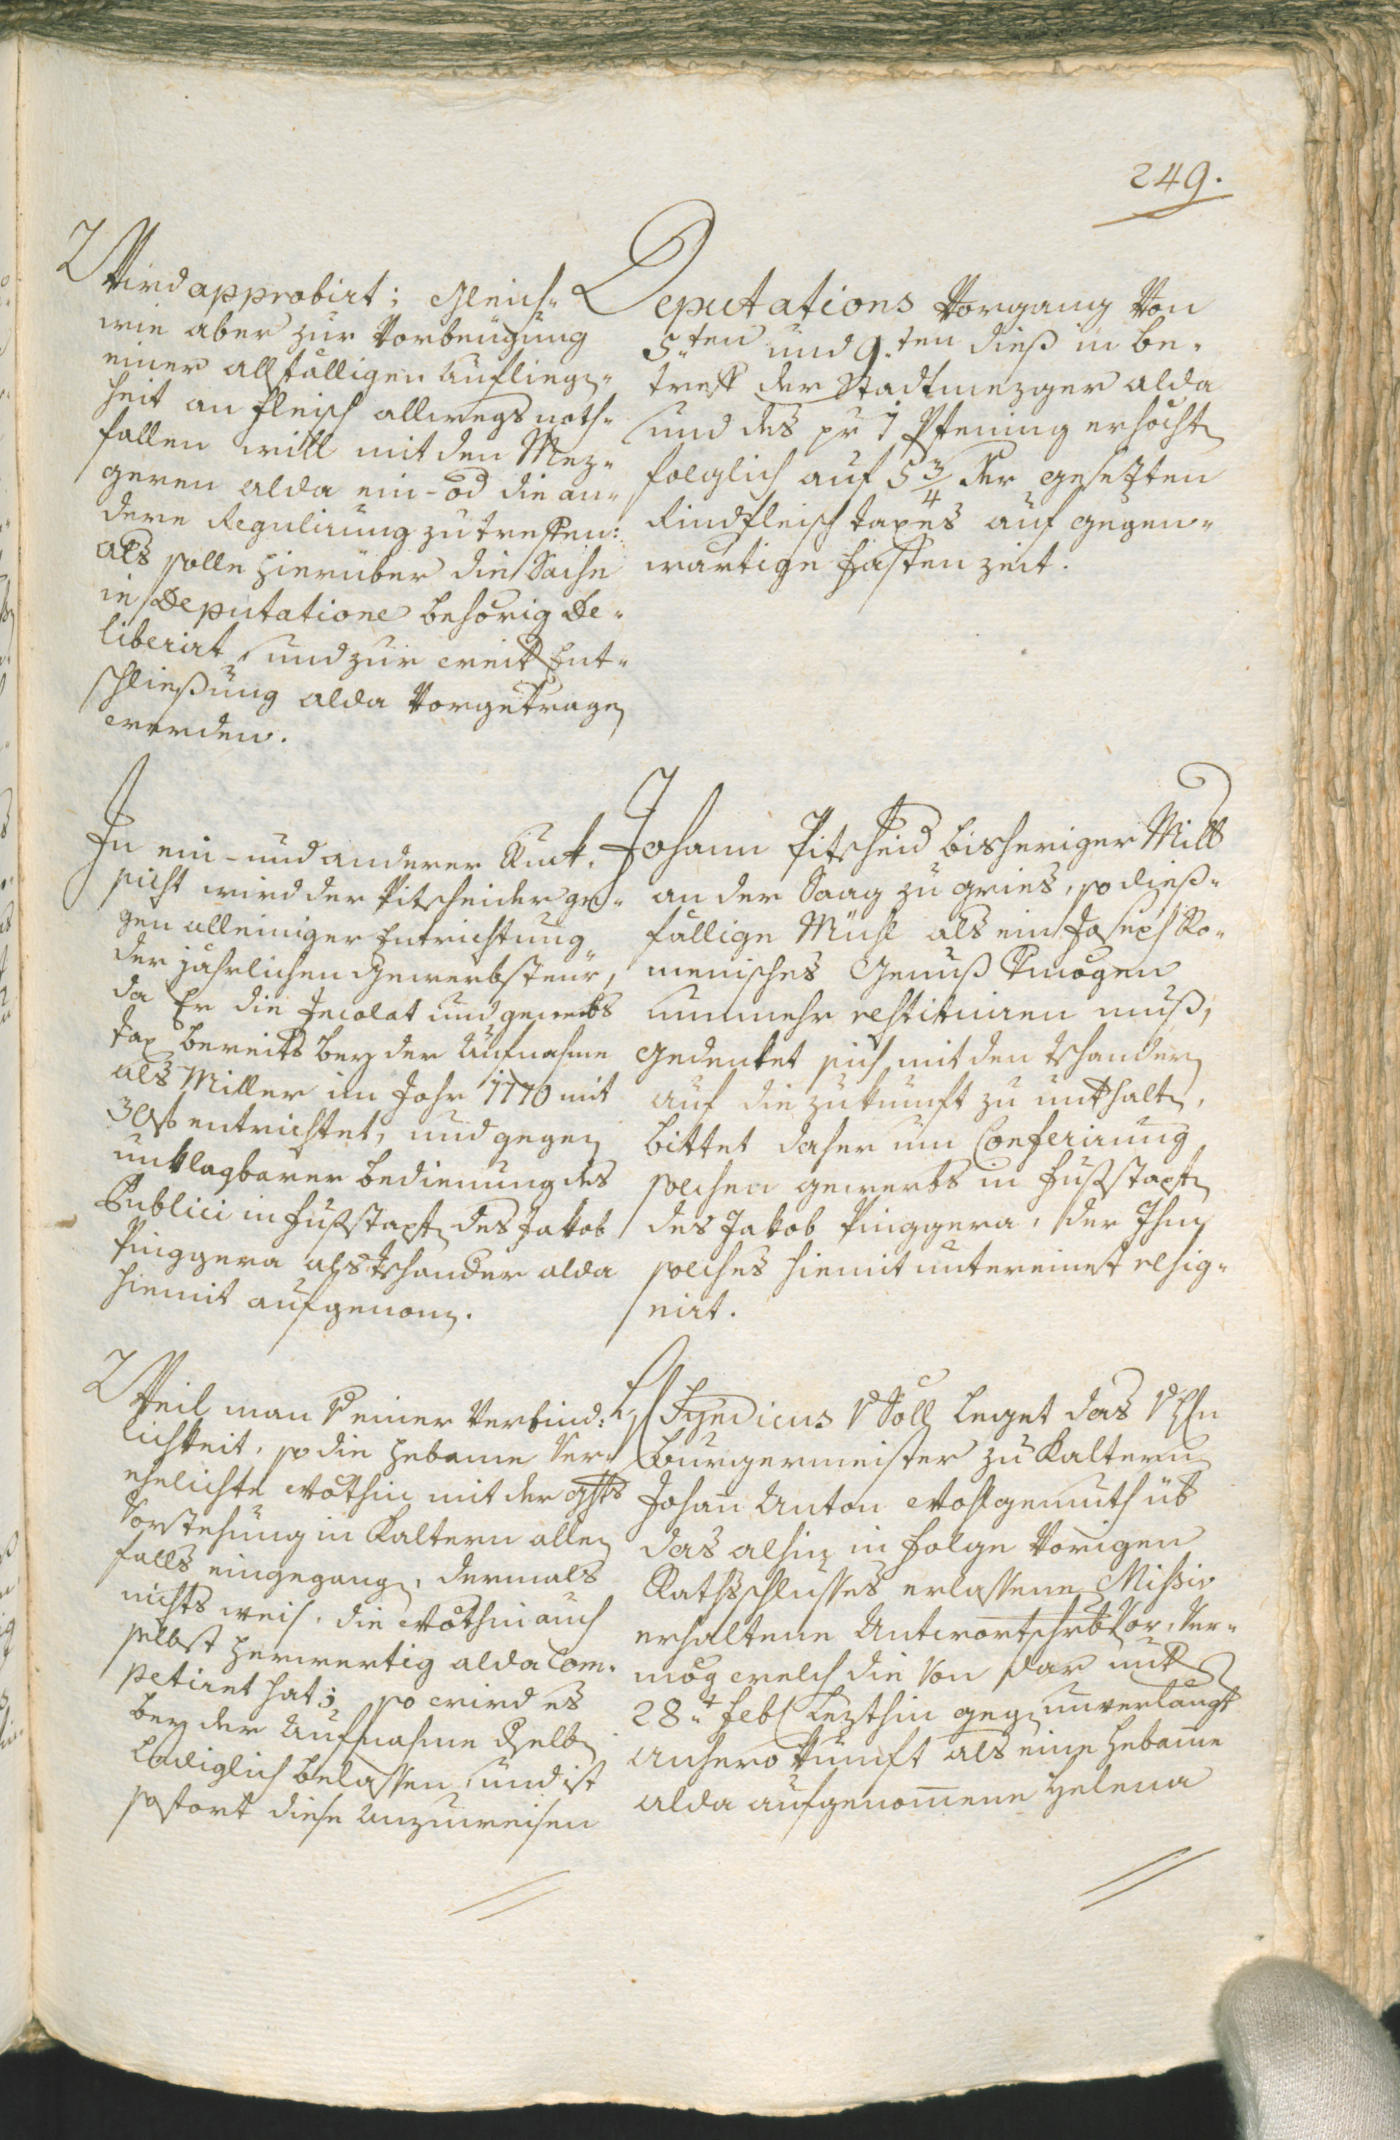 249.
Wird approbirt; Gleich-
wie aber zur Vorbeügung
einer allfälligen Auflieg-
heit an Fleisch allwegs noth-
fallen will mit den Mez-
geren alda ein- od die an-
dere Regulirung zu treffen:
als solle hierüber die Sache
in Deputatione behörig De-
liberirt, und zur weit Ent-
schließung alda Vorgetragen
werden.
Deputations Vorgang Von
5ten und 9ten dieß in be-
treff der Stadtmezger alda
und des pr 1 Pfening erhöchten
folglich auf 5 3/4 Kr gesetzten
Rindfleisch taxes auf gegen-
wärtige Fasten zeit.
In ein- und anderer Ruck-
sicht wird der Pitscheider ge-
gen alleiniger Entrichtung
der jährlichen Gewerbsteur,
da Er die Incolat und gewerbs
tax bereits bey der Aufnahme
als Miller im Jahr 1770 mit
30 entrichtet, und gegen
unklagbarer bedienung des
Publici in Fußstapfen des Jakob
Pinggera als Tschander alda
hiemit aufgenomen.
Johann Pitscheid bisheriger Mill
an der Saag zu Gries, so dieß-
fällige Mühl als ein Joseph Ro-
menisches Genuß Vmögen
nunmehr restituiren muß,
gedenket sich mit den Tschanden
auf die zukunft zu untrhalten,
bittet daher um Conferirung
solchen gewerbs in Fußstapfen
des Jakob Pinggera, der Ihm
solches hiemit untereinst resig-
nirt.
Weil man Seiner Verbind-
lichkeit, so die Hebame Ver-
ehelichte Nothin mit der
Vorstehung in Kaltern allen
falls eingegangen, dermals
nichts weis, die Nothin auch
selbst herwertig alda Com-
petiret hat; so wird es
bey der Aufnahme dselben
lediglich belassen, und ist
sofort diese Anzuweisen
Syndicus Söll leget das
burgermeister zu Kaltern
Johan Anton Wohlgemuth üb
das alhin in Folge Vorigen
Rathsschlusses erlassene Missiv
erhaltene Antwortschrbn Vor, Ver-
mög welch die Von dar unt
28t Febr Lezthin gegen unverlangt
Anhero Kunft als eine Hebame
alda aufgenommene Helena